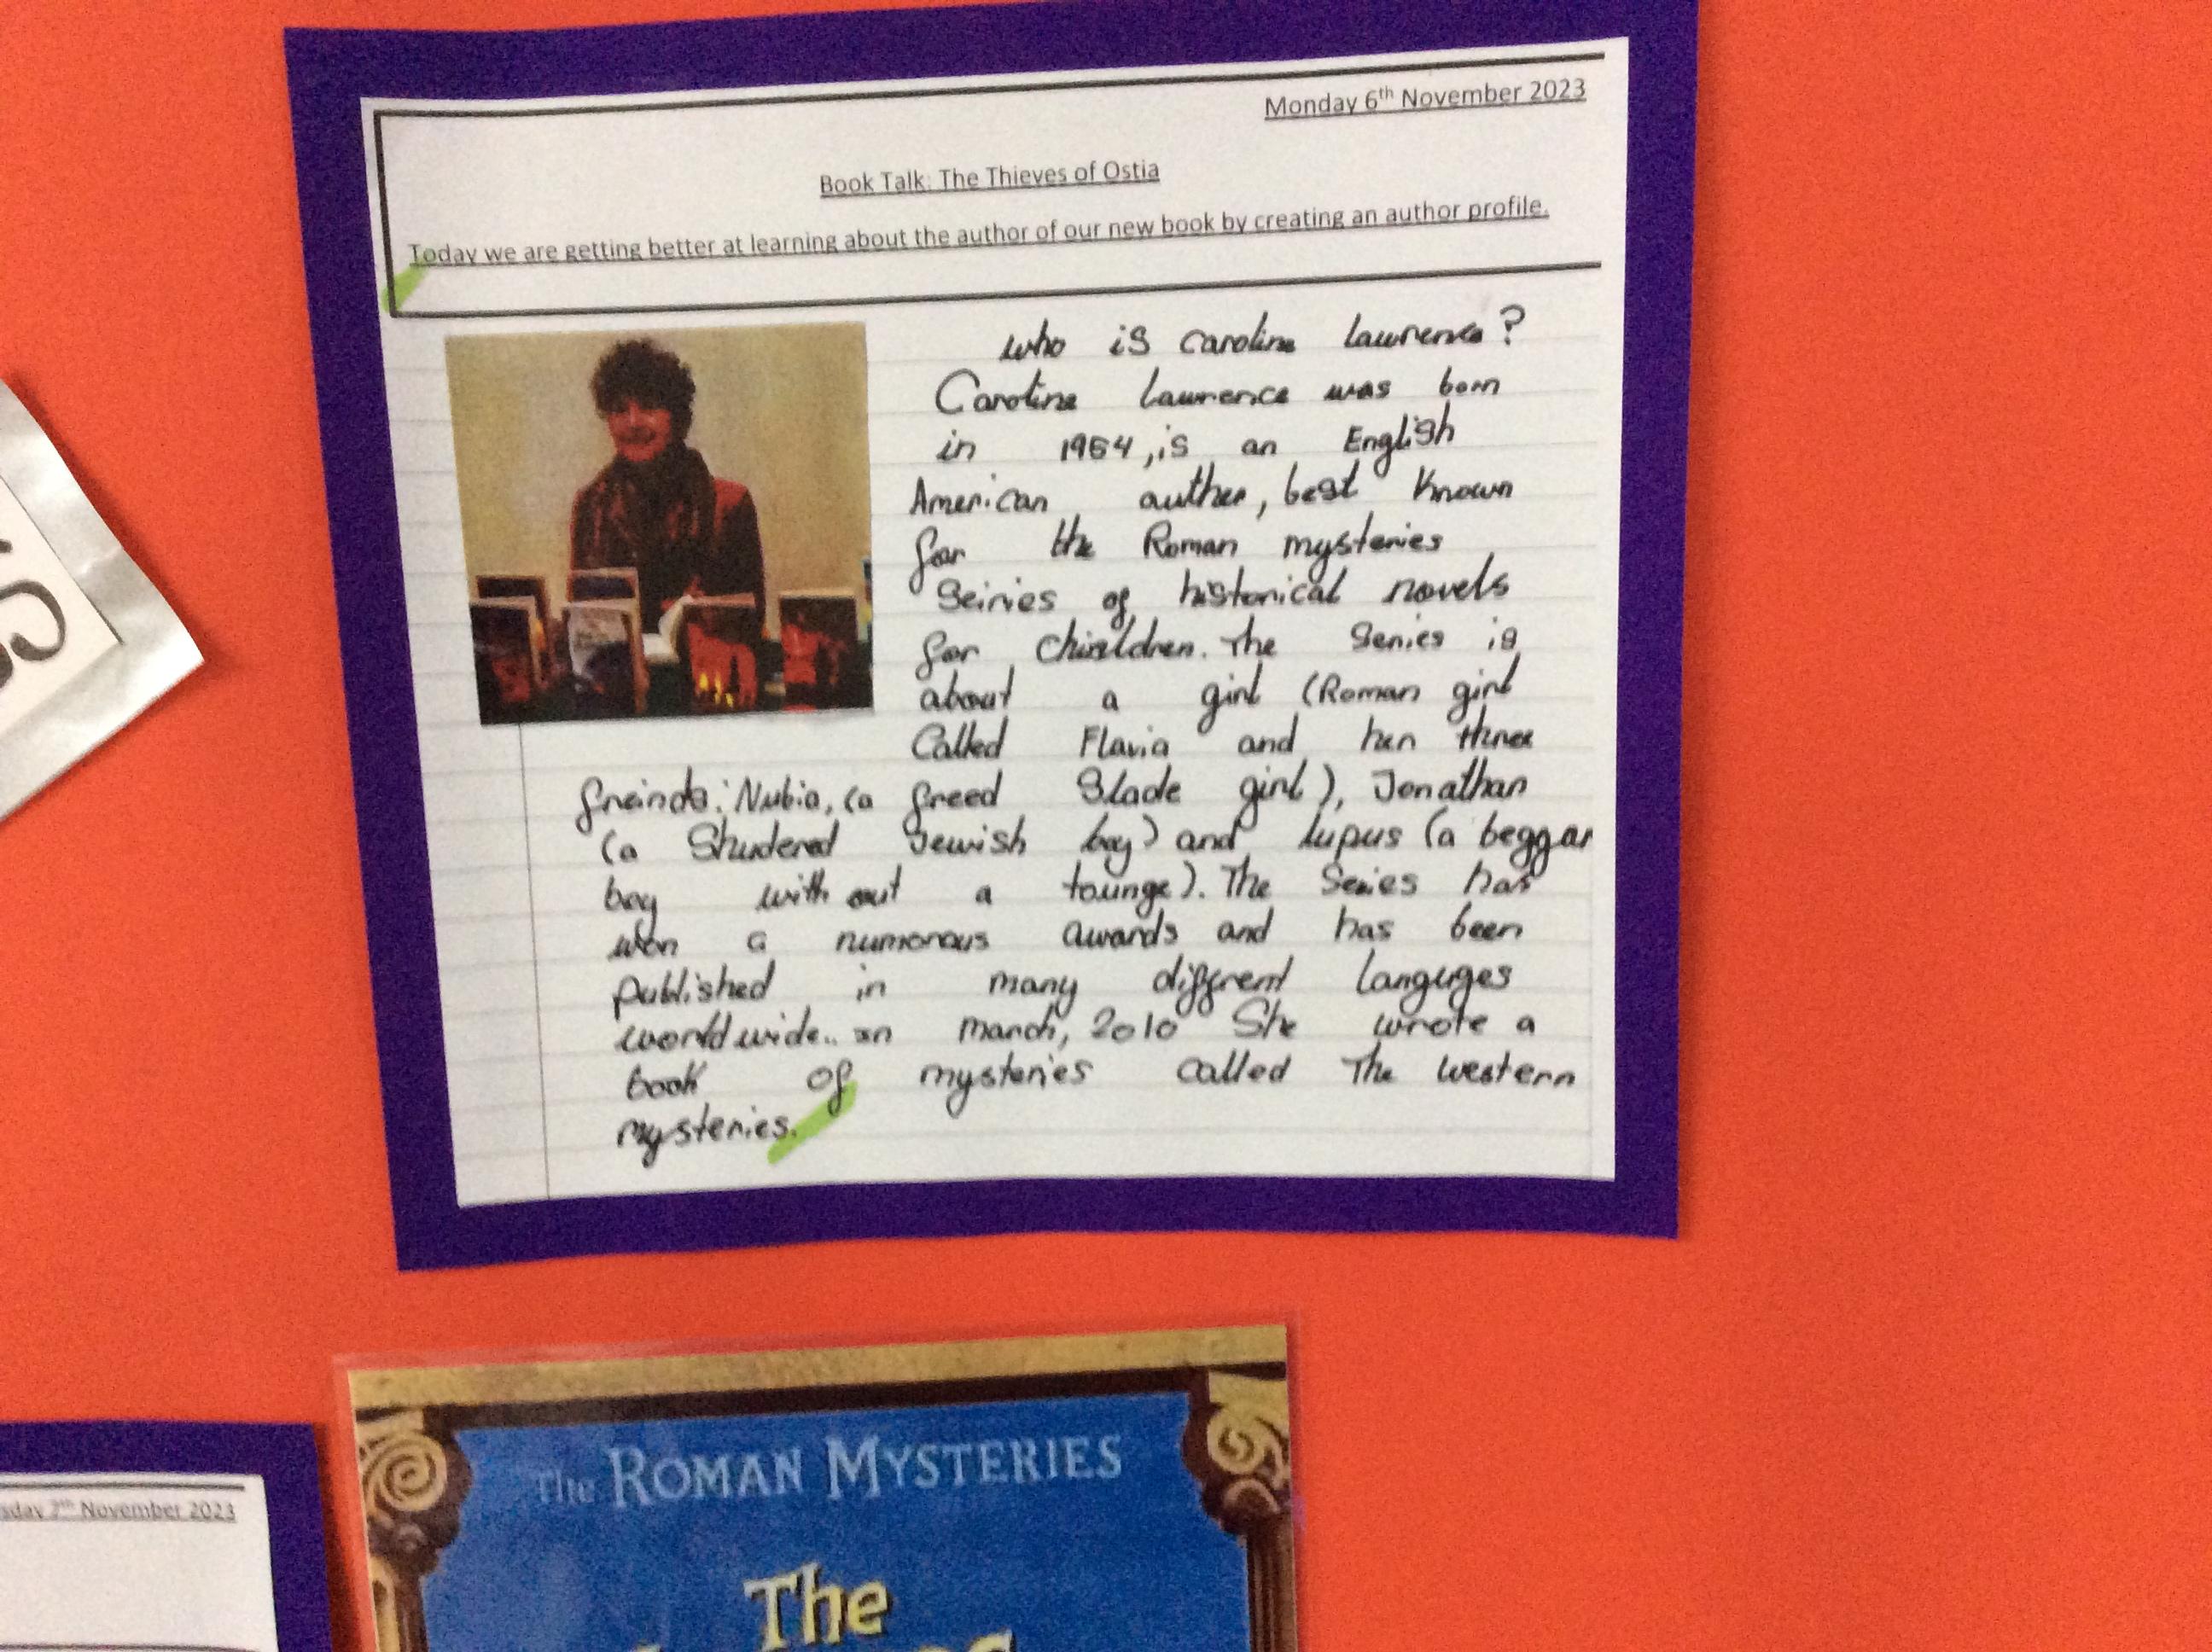 Monday 6th November 2023
Book Talk: The Thieves of Ostia
Today we are getting better at learning about the author of our new book by creating an author profile.
who is caroline lawrence?
Caroline lawrence was born
in 1954, is an English
American auther, best known
for the Roman mysteries
Seiries of historical novels
for chireldren. The Series is
about a girl (Roman girl
Called Flavia and her three
freinds; Nubia, (a freed Slade girl), Jonathan
(a Studered Jewish boy) and lupus (a beggar
boy with out a tounge). The Series has
won a numorous awards and has been
published in many diffrent languges
worldwide.. in march, 2010 She wrote a
book of mysteries called The western
mysteries.
The ROMAN MYSTERIES
The
7th November 2023